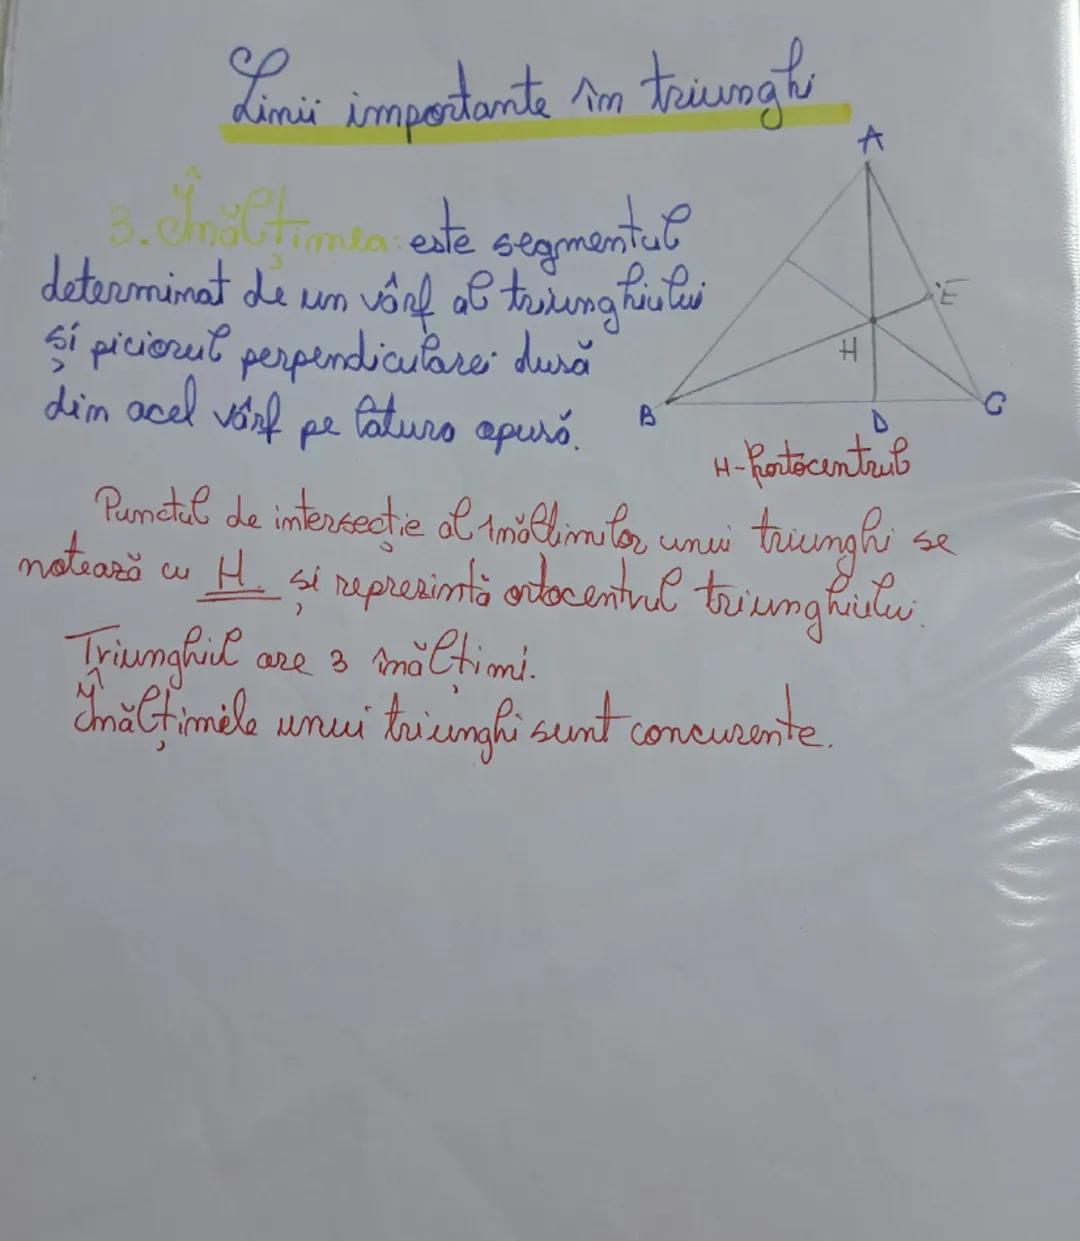 Linii importante în triunghi
3. Înălțimea: este segmentul
determinat de un vârf al triunghiului
și piciorul perpendicularei dusă
din acel vârf pe latura opusă.
A
E
H
B
D
C
H-hortocentrul
Punctul de intersecție al înălțimilor unui triunghi se
notează cu H și reprezintă ortocentrul triunghiului.
Triunghiul are 3 înălțimi.
Înălțimile unui triunghi sunt concurente.